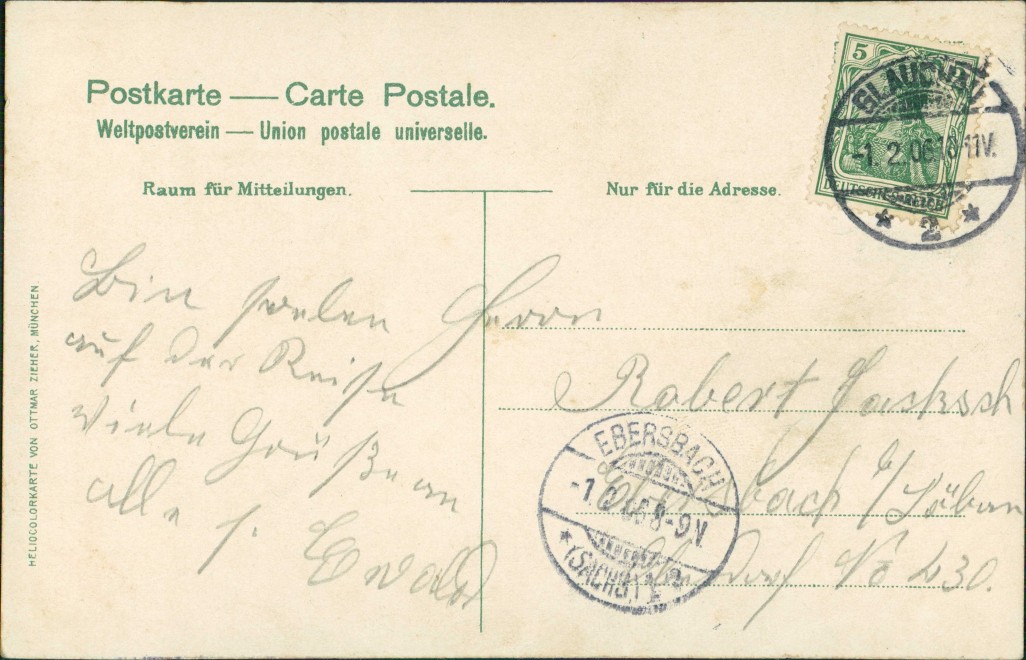 Postkarte — Carte Postale.
Weltpostverein — Union postale universelle.
Raum für Mitteilungen.
Nur für die Adresse.
5
GLAUCHAU
-1 2.06.10-11V.
DEUTSCHES REICH
* 2 *
HELIOCOLORKARTE VON OTTMAR ZIEHER, MÜNCHEN
Bin soeben
auf der Reise
Viele Grüße an
alle s.
Ewald
Herrn
Robert
Ebersbach i/ Löbau
No 430.
EBERSBACH
-1. 2 06 8-9 V.
* (SACHS.)